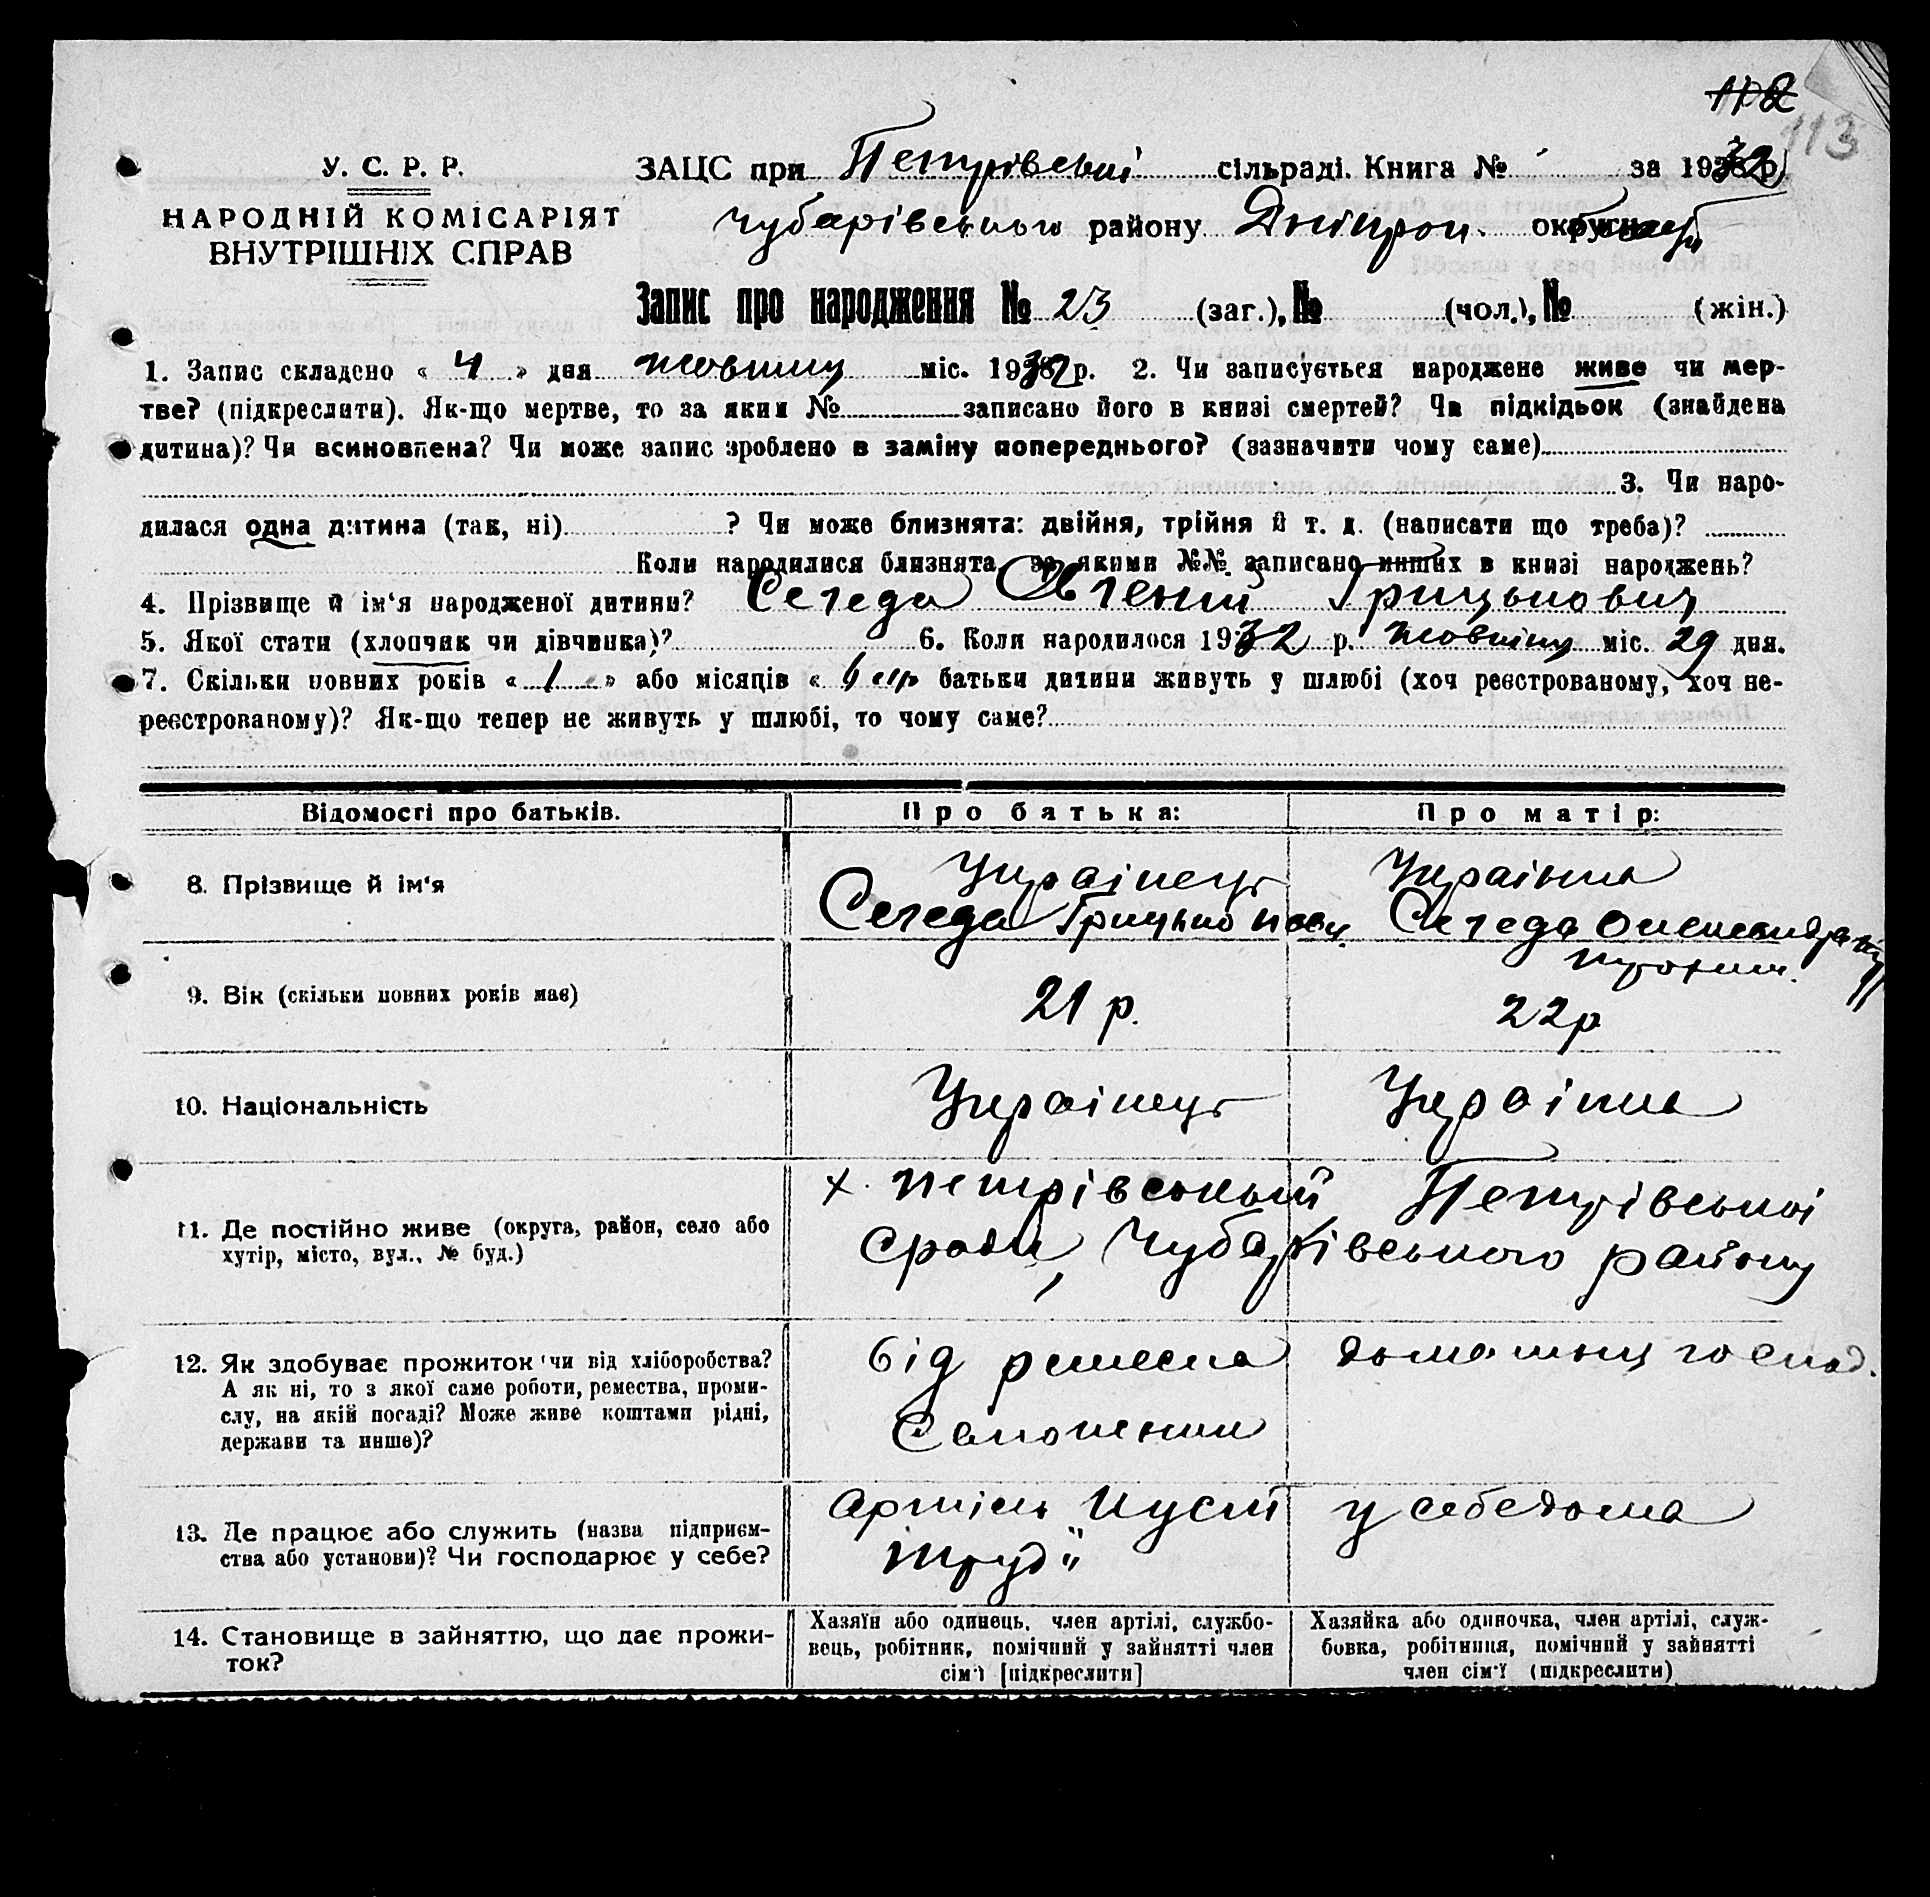 112
113
У. С. Р. Р.
НАРОДНІЙ КОМІСАРІЯТ
ВНУТРІШНІХ СПРАВ
ЗАЦС при Петрівській сільраді. Книга № за 1932 р.
Чубарівського району Дніпроп. області
Запис про народження № 23 (заг.), № (чол.), № (жін.)
1. Запис складено « 4 » дня жовтня міс. 1932 р. 2. Чи записується народжене живе чи мер-
тве? (підкреслити). Як-що мертве, то за яким № записано його в книзі смертей? Чи підкідьок (знайдена
дитина)? Чи всиновлена? Чи може запис зроблено в заміну попереднього? (зазначити чому саме)
3. Чи наро-
дилася одна дитина (так, ні) ? Чи може близнята: двійня, трійня й т. д. (написати що треба)?
Коли народилися близнята, за якими №№ записано инших в книзі народжень?
4. Прізвище й ім'я народженої дитини? Сегеда Євгений Грицькович
5. Якої стати (хлопчик чи дівчинка)? 6. Коли народилося 1932 р. міс. 29 дня.
7. Скільки повних років « 1 » або місяців « батьки дитини живуть у шлюбі (хоч реєстрованому, хоч не-
реєстрованому)? Як-що тепер не живуть у шлюбі, то чому саме?
Відомості про батьків. Про батька: Про матір:
8. Прізвище й ім'я
Українець Українка
Сегеда Грицько Сегеда Олександра
9. Вік (скільки повних років має) 21 р. 22 р
10. Національність Українець Українка
11. Де постійно живе (округа, район, село або
хутір, місто, вул., № буд.)
х. Петрівський Петрівської
с ради, Чубарівського району
12. Як здобуває прожиток чи від хліборобства?
А як ні, то з якої саме роботи, ремества, проми-
слу, на якій посаді? Може живе коштами рідні,
держави та инше)?
від ремесла домашньц господ.
13. Де працює або служить (назва підприєм-
ства або установи)? Чи господарює у себе?
Артіль у себе дома
труд"
14. Становище в зайняттю, що дає прожи-
ток?
Хазяїн або одинець, член артілі, службо-
вець, робітник, помічний у зайнятті член
сім'ї [підкреслити]
Хазяйка або одиночка, член артілі, служ-
бовка, робітниця, помічний у зайнятті
член сім'ї (підкреслити)